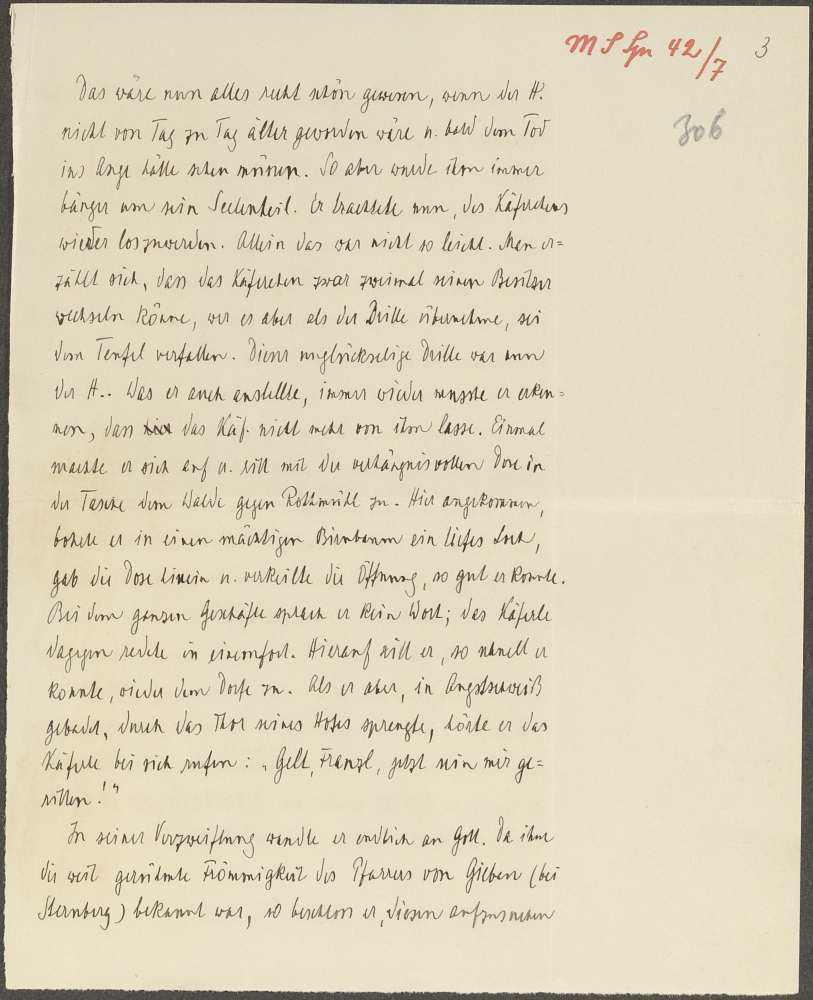 MS Gu 42/7 3
306
Das wäre nun alles recht schön gewesen, wenn der H.
nicht von Tag zu Tag älter geworden wäre u. bald dem Tod
ins Auge hätte sehen müssen. So aber wurde ihm immer
bänger um sein Seelenheil. Er trachtete nun, des Käferchens
wieder loszuwerden. Allein das war nicht so leicht. Man er=
zählt sich, dass das Käferchen zwar zweimal seinen Besitzer
wechseln könne, wer es aber als der Dritte übernehme, sei
dem Teufel verfallen. Dieser unglückselige Dritte war nun
der H.. Was er auch anstellte, immer wieder musste er erken=
nen, dass das Käf. nicht mehr von ihm lasse. Einmal
machte er sich auf u. ritt mit der verhängnisvollen Dose in
der Tasche dem Walde gegen Rothmühl zu. Hier angekommen,
bohrte er in einen mächtigen Birnbaum ein tiefes Loch,
gab die Dose hinein u. verkeilte die Öffnung, so gut er konnte.
Bei dem ganzen Geschäfte sprach er kein Wort; das Käferle
dagegen redete in einemfort. Hierauf ritt er, so schnell er
konnte, wieder dem Dorfe zu. Als er aber, in Angstschweiß
gebadet, durch das Thor seines Hofes sprengte, hörte er das
Käferle bei sich rufen: „Gelt, Franzl, jetzt sein mir ge=
ritten!"
In seiner Verzweiflung wandte er endlich an Gott. Da ihm
die weit gerühmte Frömmigkeit des Pfarrers von Gieben (bei
Sternberg) bekannt war, so beschloss er, diesen aufzusuchen